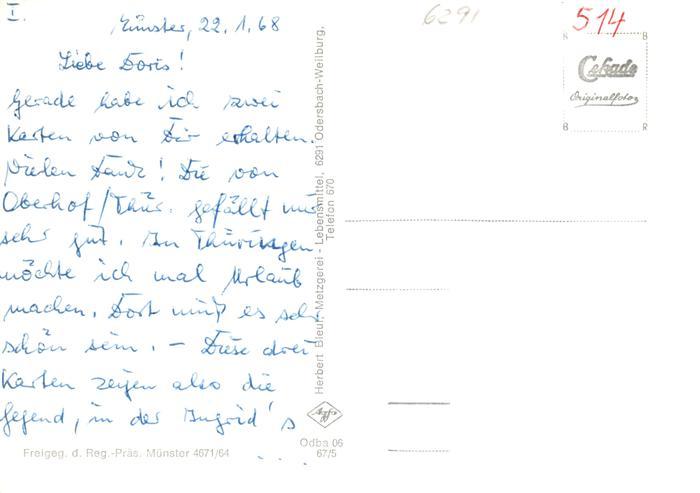 I.
Münster, 22.1.68
Liebe Doris!
Gerade habe ich zwei
Karten von Dir erhalten.
Vielen Dank! Die von
Oberhof/Thür. gefällt mir
sehr gut. In Thüringen
möchte ich mal Urlaub
machen. Dort muß es sehr
schön sein. — Diese drei
Karten zeigen also die
Gegend, in der Ingrid's
...
Freigeg. d. Reg.-Präs. Münster 4671/64
Herbert Bleul, Metzgerei - Lebensmittel, 6291 Odersbach-Weilburg,
Telefon 670
Agfa
Odba 06
67/5
6291
514
Cekade
Originalfoto